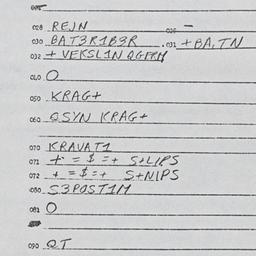 028 REJN 029 -
030 BAT3R1B3R . 031 + BA, TN
032 + VEKSL1N QGFRM
040 O
050 KRAG+
060 QSYN KRAG+
070 KRAVAT1
071 + = $ = + S+LIPS
072 + = $ = + S+NIPS
080 S3POST1M
081 O
090 QT